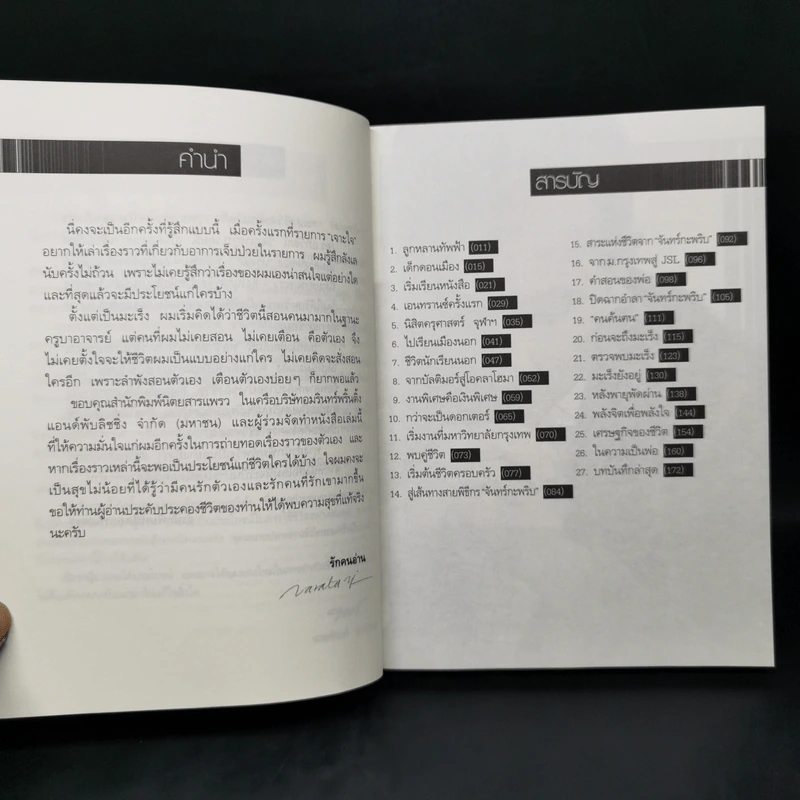 คำนำ
นี่คงจะเป็นอีกครั้งที่รู้สึกแบบนี้ เมื่อครั้งแรกที่รายการ "เจาะใจ"
อยากให้เล่าเรื่องราวที่เกี่ยวกับอาการเจ็บป่วยในรายการ ผมรู้สึกลังเล
นับครั้งไม่ถ้วน เพราะไม่เคยรู้สึกว่าเรื่องของผมเองน่าสนใจแต่อย่างใด
และที่สุดแล้วจะมีประโยชน์แก่ใครบ้าง
ตั้งแต่เป็นมะเร็ง ผมเริ่มคิดได้ว่าชีวิตนี้สอนคนมามากในฐานะ
ครูบาอาจารย์ แต่คนที่ผมไม่เคยสอน ไม่เคยเตือน คือตัวเอง จึง
ไม่เคยตั้งใจจะให้ชีวิตผมเป็นแบบอย่างแก่ใคร ไม่เคยคิดจะสั่งสอน
ใครอีก เพราะลำพังสอนตัวเอง เตือนตัวเองบ่อยๆ ก็ยากพอแล้ว
ขอบคุณสำนักพิมพ์นิตยสารแพรว ในเครือบริษัทอมรินทร์พริ้นติ้ง
แอนด์พับลิชชิ่ง จำกัด (มหาชน) และผู้ร่วมจัดทำหนังสือเล่มนี้
ที่ให้ความมั่นใจแก่ผมอีกครั้งในการถ่ายทอดเรื่องราวของตัวเอง และ
หากเรื่องราวเหล่านี้จะพอเป็นประโยชน์แก่ชีวิตใครได้บ้าง ใจผมคงจะ
เป็นสุขไม่น้อยที่ได้รู้ว่ามีคนรักตัวเองและรักคนที่รักเขามากขึ้น
ขอให้ท่านผู้อ่านประคับประคองชีวิตของท่านให้ได้พบความสุขที่แท้จริง
นะครับ
รักคนอ่าน
สารบัญ
1. ลูกหลานทัพฟ้า (011)
2. เด็กดอนเมือง (015)
3. เริ่มเรียนหนังสือ (021)
4. เอนทรานซ์ครั้งแรก (029)
5. นิสิตครุศาสตร์ จุฬาฯ (035)
6. ไปเรียนเมืองนอก (041)
7. ชีวิตนักเรียนนอก (047)
8. จากบัลติมอร์สู่โอคลาโฮมา (052)
9. งานพิเศษคือเงินพิเศษ (059)
10. กว่าจะเป็นดอกเตอร์ (065)
11. เริ่มงานที่มหาวิทยาลัยกรุงเทพ (070)
12. พบคู่ชีวิต (073)
13. เริ่มต้นชีวิตครอบครัว (077)
14. สู่เส้นทางสายพิธีกร "จันทร์กะพริบ" (084)
15. สาระแห่งชีวิตจาก "จันทร์กะพริบ" (092)
16. จาก ม.กรุงเทพสู่ JSL (096)
17. คำสอนของพ่อ (098)
18. ปิดฉากอำลา "จันทร์กะพริบ" (105)
19. "คนค้นฅน" (111)
20. ก่อนจะถึงมะเร็ง (115)
21. ตรวจพบมะเร็ง (123)
22. มะเร็งยังอยู่ (130)
23. หลังพายุพัดผ่าน (138)
24. พลังจิตเพื่อพลังใจ (144)
25. เศรษฐกิจของชีวิต (154)
26. ในความเป็นพ่อ (160)
27. บทบันทึกล่าสุด (172)